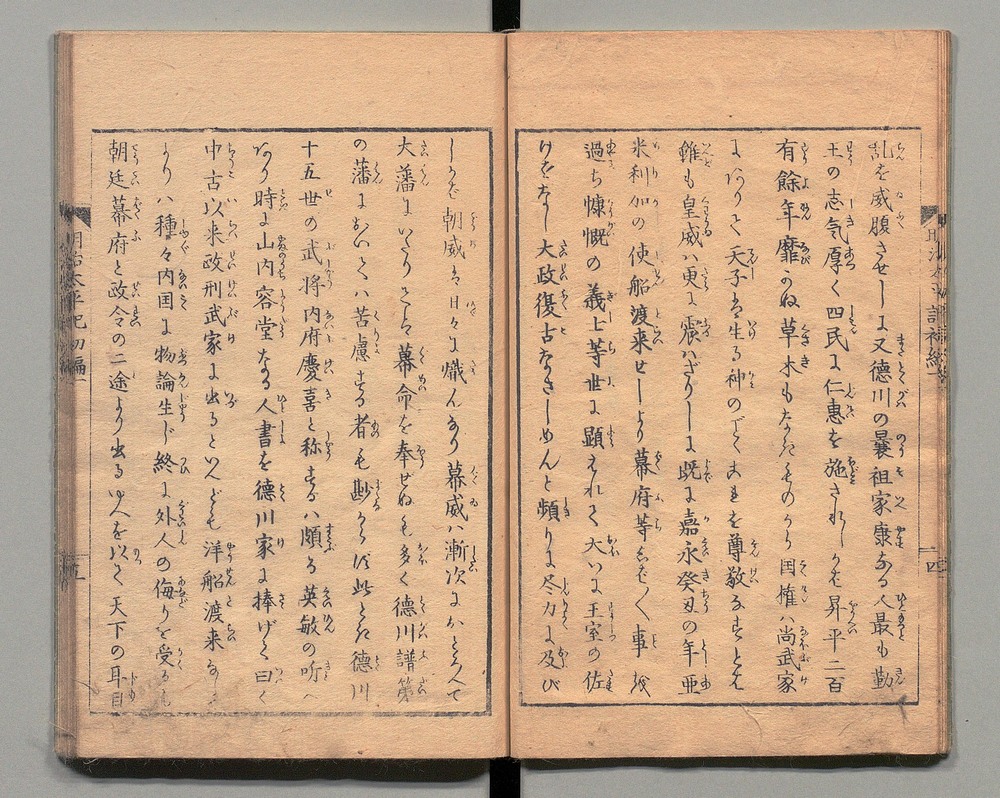 乱を威腹させしに又徳川の曩祖家康なる人最も勤
王の志気厚く四民に仁恵を施されしかば昇平二百
有餘年靡かぬ草木もなきものから国権ハ尚武家
にありて天子は生る神のごとくこれを尊敬なすとい
雖も皇威ハ更に震ハざりしに既に嘉永癸丑の年亜
米利加の使船渡来せしより幕府等しばしば事
過ち慷慨の義上等世に顕ハれて大いに王室の佐
けをなし大政復古なさしめんと頻りに尽力に及び
しかば朝威は日々に熾んなり幕威ハ漸次におとろへて
大藩にいたりては幕命を奉ぜぬも多く徳川譜第
の藩においてハ苦慮する者も尠からず此とき徳川
十五世の武将内府慶喜と称するハ頗る英敏の听へ
あり時に山内容堂なる人書を徳川家に捧げて曰く
中古以来政刑武家に出るといへども洋船渡来
より八種々内国に物論生じ終に外人の侮りを受るも
朝廷幕府と政令の二途より出るゆへを以て天下の耳目
明治太平記初編